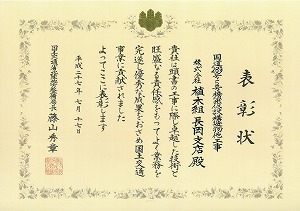 表彰状
株式会社 植木組 長岡支店 殿
貴社は頭書の工事に際し卓越した技術と
旺盛なる責任感をもってよく業務を
完遂し優秀な成果をおさめ国土交通
事業に貢献されました
よってここに表彰します
平成二十七年七月十七日
国土交通省北陸地方整備局長 藤山秀章